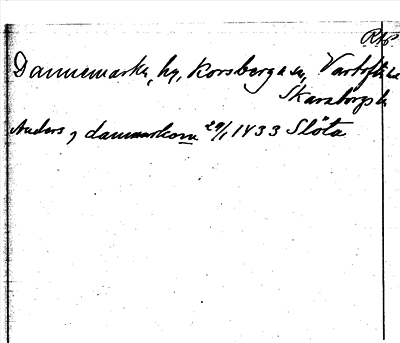 RAP.
Dannemarka, hg, Korsberga sn, Vartofta hd
Skaraborgs l.
Anders i danmarkom 29/1 1433 Slöta